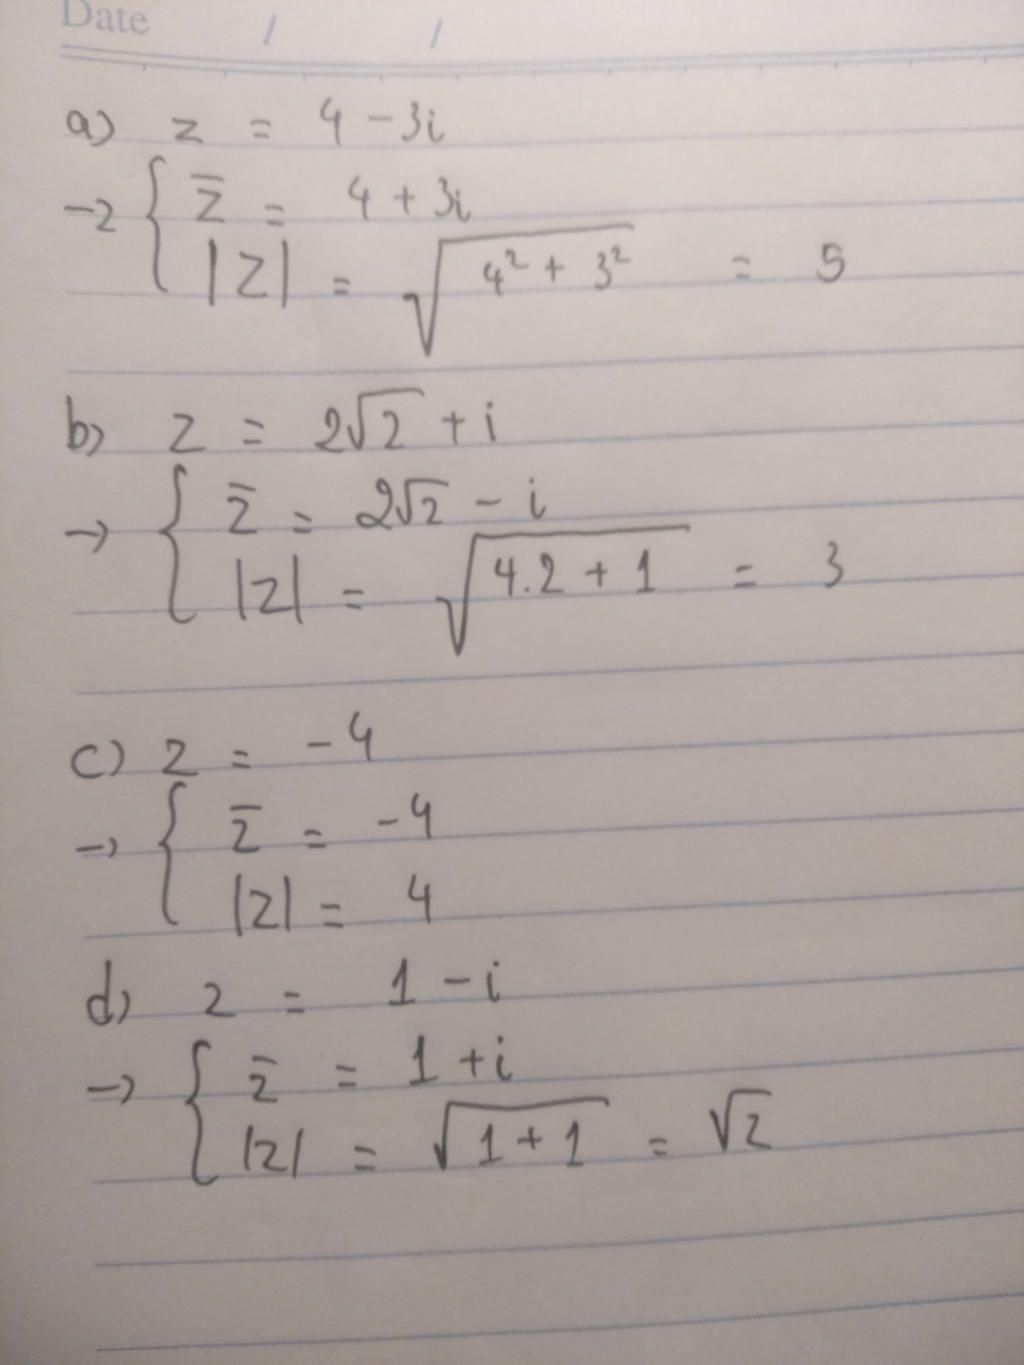 Date / /
a) z = 4 - 3i
→ { z̄ = 4 + 3i
|z| = √(4² + 3²) = 5
b) z = 2√2 + i
→ { z̄ = 2√2 - i
|z| = √(4.2 + 1) = 3
c) z = -4
→ { z̄ = -4
|z| = 4
d) z = 1 - i
→ { z̄ = 1 + i
|z| = √(1 + 1) = √2